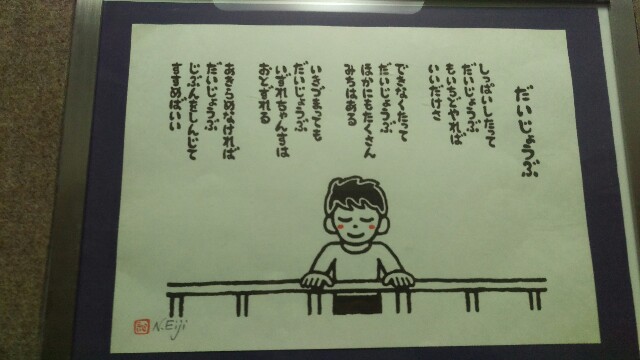 だいじょうぶ
しっぱいしたって
だいじょうぶ
もいちどやれば
いいだけさ
できなくたって
だいじょうぶ
ほかにもたくさん
みちはある
いきづまっても
だいじょうぶ
いずれちゃんすは
おとずれる
あきらめなければ
だいじょうぶ
じぶんをしんじて
すすめばいい
N.Eiji